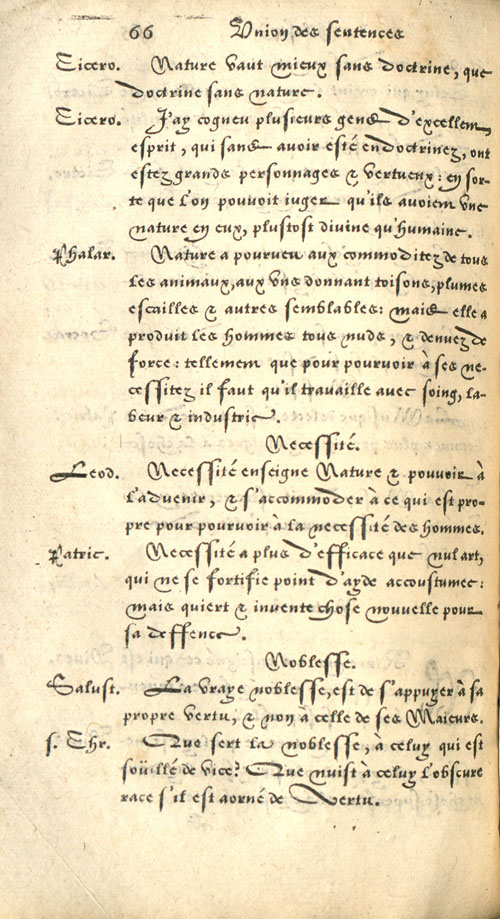 66 Vnion des sentences
Cicero. Nature vaut mieux sans doctrine, que
doctrine sans nature.
Cicero. J'ay cogneu plusieurs gens d'excellent
esprit, qui sans avoir esté endoctrinez, ont
estez grands personnages & vertueux: en sor-
te que l'on pouvoit iuger qu'ils avoient vne
nature en eux, plustost divine qu'humaine.
Phalar. Nature a pourveu aux commoditez de tous
les animaux, aux vns donnant toisons, plumes
escailles & autres semblables: mais elle a
produit les hommes tous nuds, & denuez de
force: tellement que pour pourvoir à ses ne-
cessitez il faut qu'il travaille avec soing, la-
beur & industrie.
Necessité.
Leod. Necessité enseigne Nature & pouvoir à
l'advenir, & s'accommoder à ce qui est pro-
pre pour pourvoir à la necessité des hommes.
Patric. Necessité a plus d'efficace que nul art,
qui ne se fortifie point d'ayde accoustumee:
mais quiert & invente chose nouvelle pour
sa deffence.
Noblesse.
Salust. La vraye noblesse, est de s'appuyer à sa
propre vertu, & non à celle de ses Maieurs.
s. Chr. Que sert la noblesse, à celuy qui est
souillé de vice? Que nuist à celuy l'obscure
race s'il est aorné de Vertu.